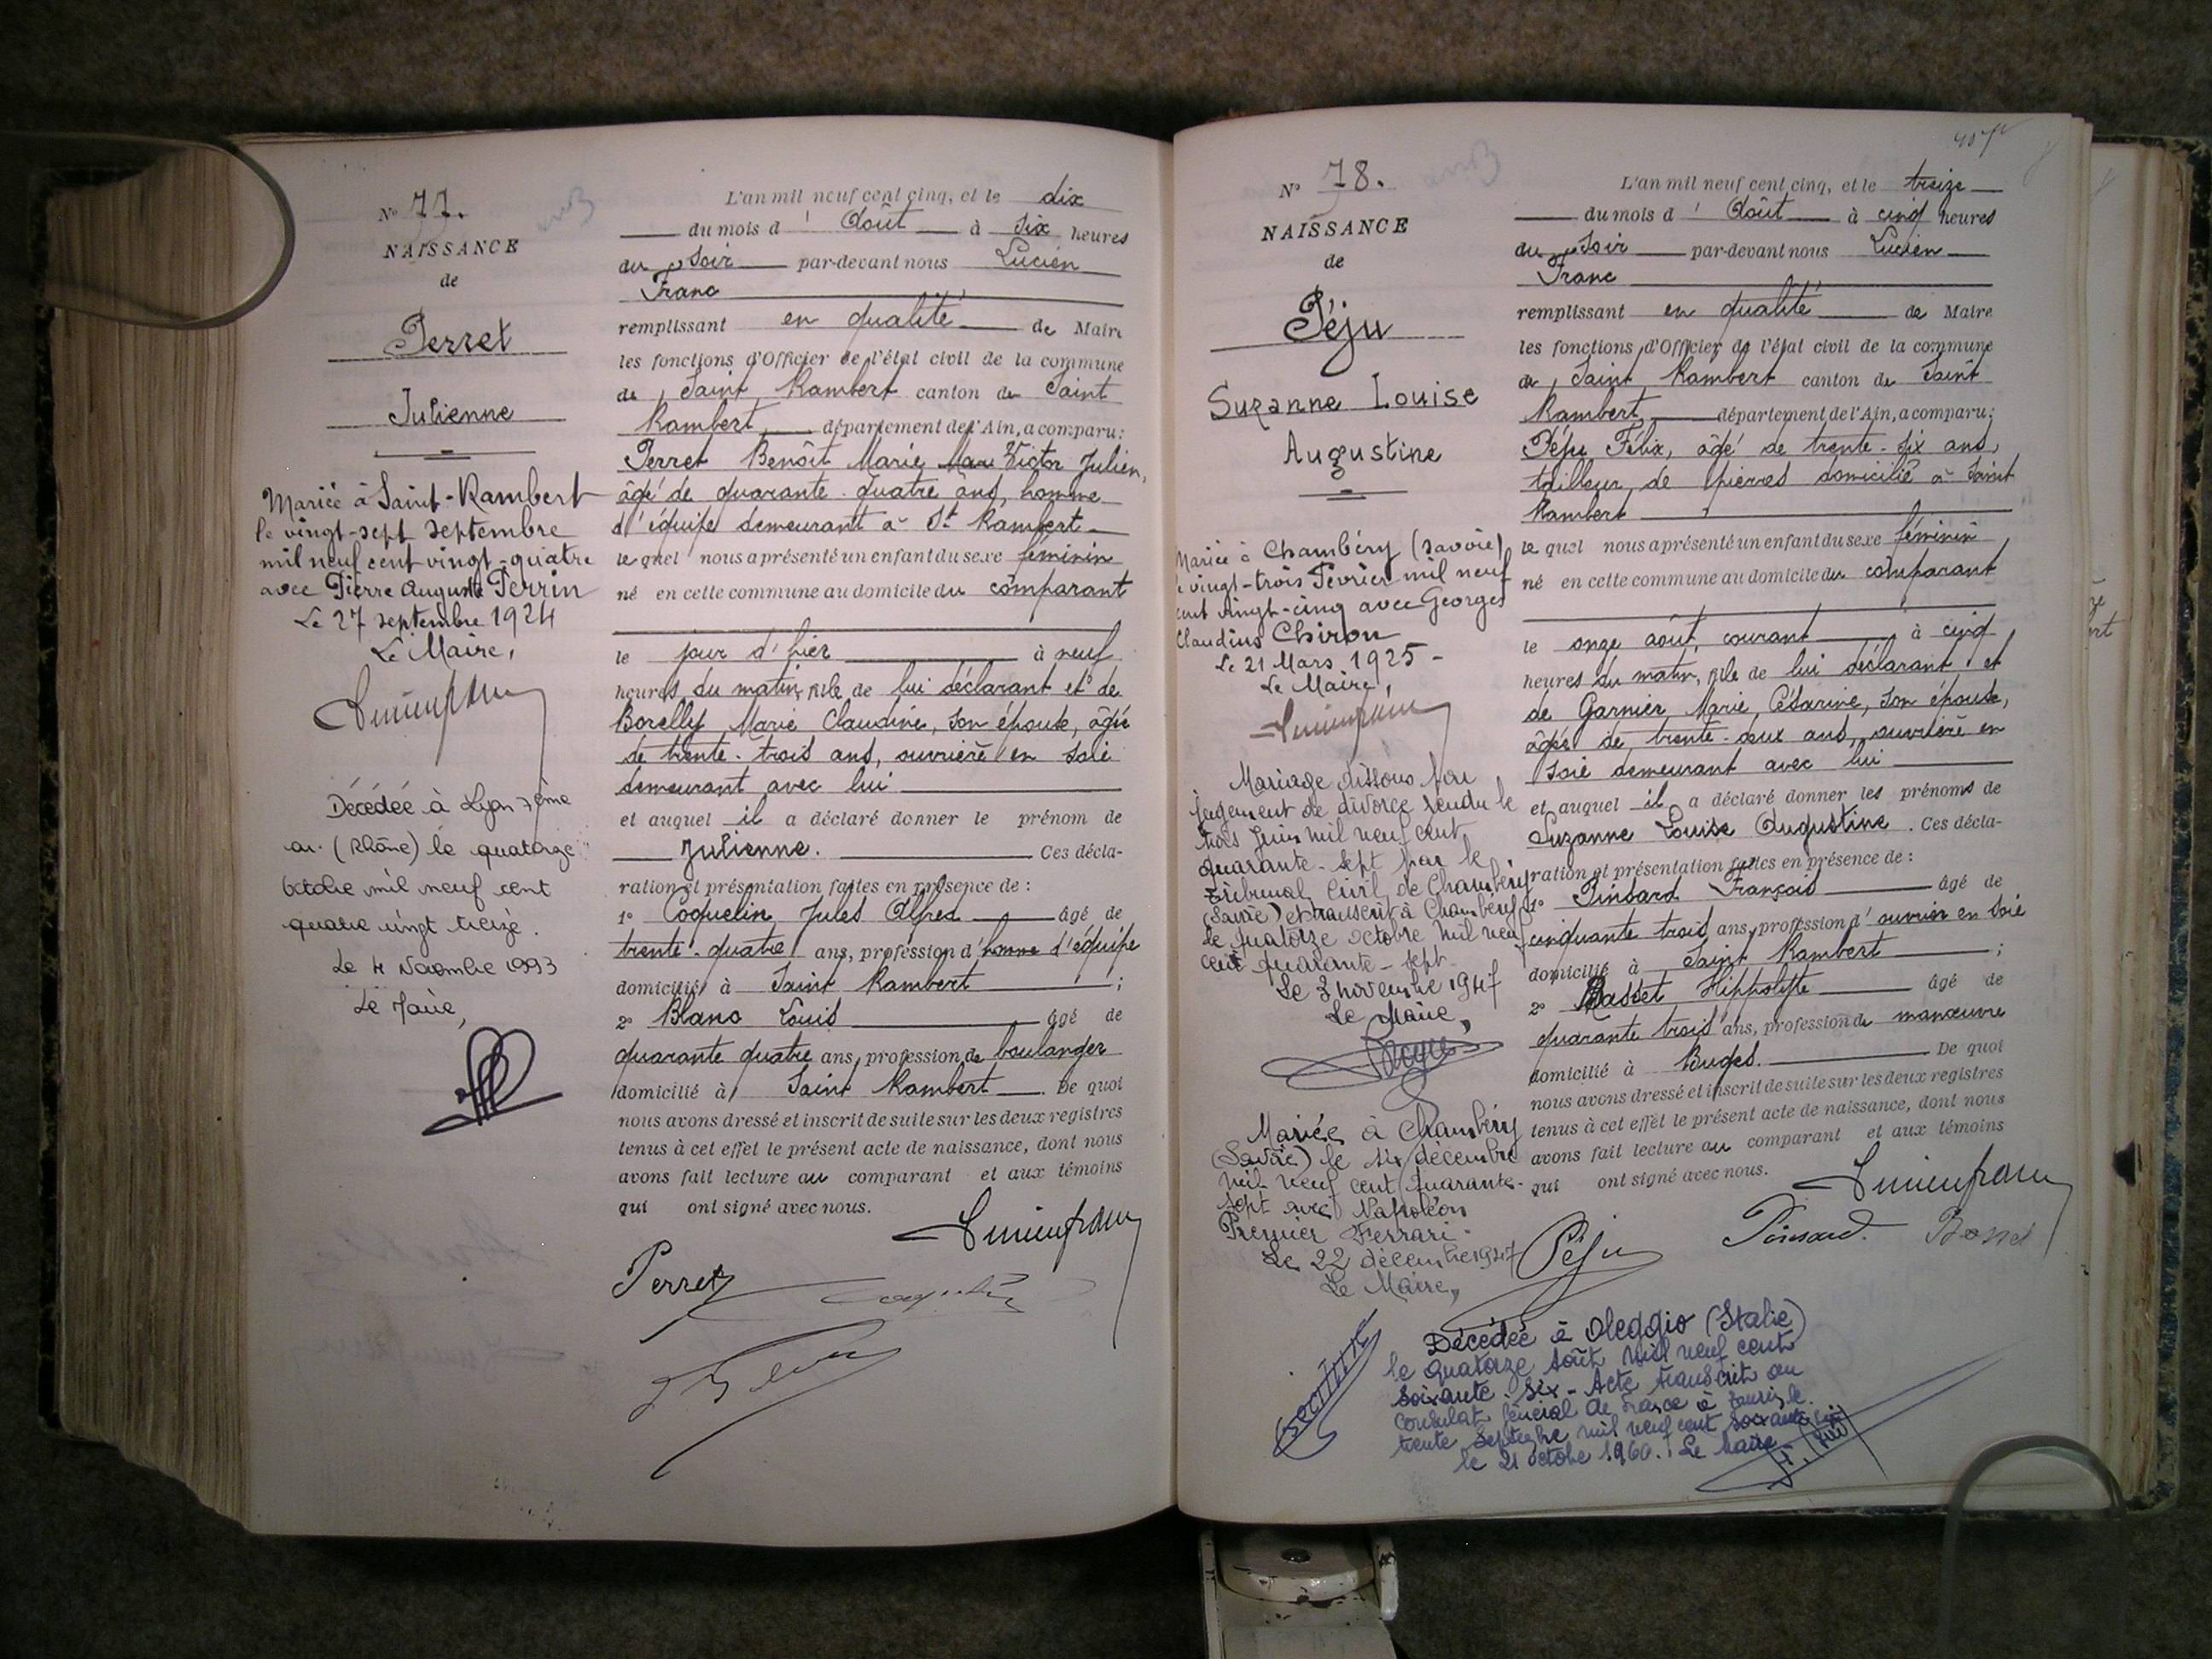 Nº 77.
NAISSANCE
de
Perret
Julienne
Mariée à Saint-Rambert
le vingt-sept septembre
mil neuf cent vingt-quatre
avec Pierre Auguste Perrin
Le 27 septembre 1924
Le Maire,
Décédée à Lyon 7ème
ar. (Rhône) le quatorze
octobre mil neuf cent
quatre vingt treize.
Le 4 Novembre 1993
Le Maire,
L'an mil neuf cent cinq, et le dix
du mois d' Août à six heures
du soir par-devant nous Lucien
Franc
remplissant en qualité de Maire
les fonctions d'Officier de l'état civil de la commune
de Saint Rambert canton de Saint
Rambert, département de l'Ain, a comparu:
Perret Benoît Marie Victor Julien,
âgé de quarante-quatre ans, homme
d'équipe demeurant à St Rambert
lequel nous a présenté un enfant du sexe féminin
né en cette commune au domicile du comparant
le jour d'hier à neuf
heures du matin, née de lui déclarant et de
Borelly Marie Claudine, son épouse, âgée
de trente-trois ans, ouvrière en soie
demeurant avec lui
et auquel il a déclaré donner le prénom de
Julienne. Ces décla-
ration et présentation faites en présence de:
1º Coquelin Jules Alfred âgé de
trente-quatre ans, profession d'homme d'équipe
domicilié à Saint Rambert;
2º Blanc Louis âgé de
quarante quatre ans, profession de boulanger
domicilié à Saint Rambert. De quoi
nous avons dressé et inscrit de suite sur les deux registres
tenus à cet effet le présent acte de naissance, dont nous
avons fait lecture au comparant et aux témoins
qui ont signé avec nous.
Lucien Franc
Perret
Coquelin
Nº 78.
NAISSANCE
de
Péju
Suzanne Louise
Augustine
Mariée à Chambéry (Savoie)
le vingt-trois Février mil neuf
cent vingt-cinq avec Georges
Claudius Chiron
Le 21 Mars 1925-
Le Maire,
Mariage dissous par
jugement de divorce rendu le
trois Juin mil neuf cent
quarante-sept par le
Tribunal Civil de Chambéry
(Savoie) et transcrit à Chambéry
le quatorze octobre mil neuf
cent quarante-sept
Le 3 novembre 1947
Le Maire,
Mariée à Chambéry
(Savoie) le six décembre
mil neuf cent quarante-
sept avec Napoléon
Premier Ferrari.
Le 22 décembre 1947
Le Maire,
L'an mil neuf cent cinq, et le treize
du mois d' Août à cinq heures
du soir par-devant nous Lucien
Franc
remplissant en qualité de Maire
les fonctions d'Officier de l'état civil de la commune
de Saint Rambert canton de Saint
Rambert, département de l'Ain, a comparu;
Péju Félix, âgé de trente-six ans,
tailleur de pierres domicilié à Saint
Rambert
lequel nous a présenté un enfant du sexe féminin
né en cette commune au domicile du comparant
le onze août, courant à cinq
heures du matin, née de lui déclarant et
de Garnier Marie Césarine, son épouse,
âgée de trente-deux ans, ouvrière en
soie demeurant avec lui
et auquel il a déclaré donner les prénoms de
Suzanne Louise Augustine. Ces décla-
ration et présentation faites en présence de:
1º Pinsard François âgé de
cinquante trois ans, profession d'ouvrier en soie
domicilié à Saint Rambert;
2º Basset Hippolyte âgé de
quarante trois ans, profession de manœuvre
domicilié à Buges. De quoi
nous avons dressé et inscrit de suite sur les deux registres
tenus à cet effet le présent acte de naissance, dont nous
avons fait lecture au comparant et aux témoins
qui ont signé avec nous.
Lucien Franc
Péju
Pinsard
Basset
Décédée à Oleggio (Italie)
le quatorze Août mil neuf cent
soixante-six-Acte transcrit au
consulat général de France à le
trente Septembre mil neuf cent soixante six
le 21 octobre 1966. Le Maire